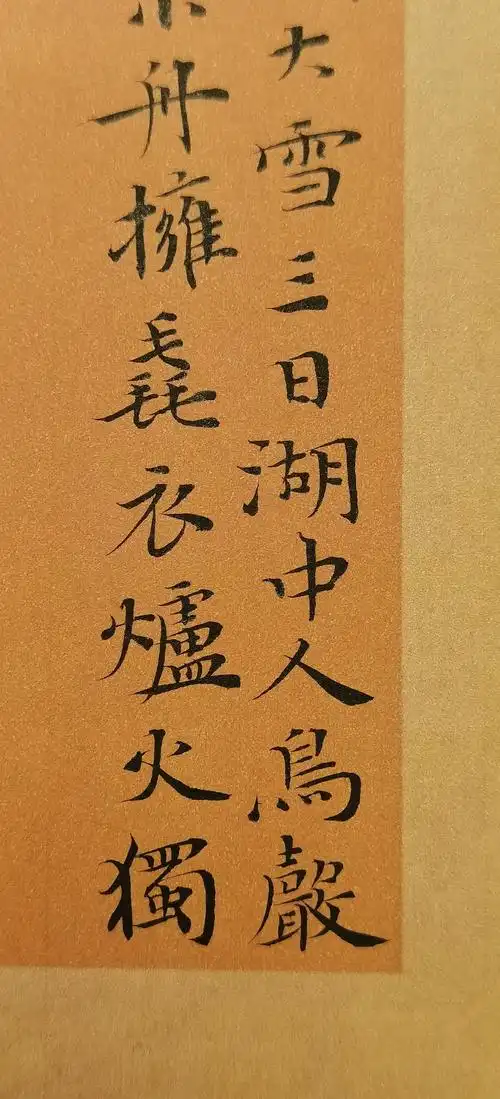 大雪三日湖中人鳥聲
小舟擁毳衣爐火獨